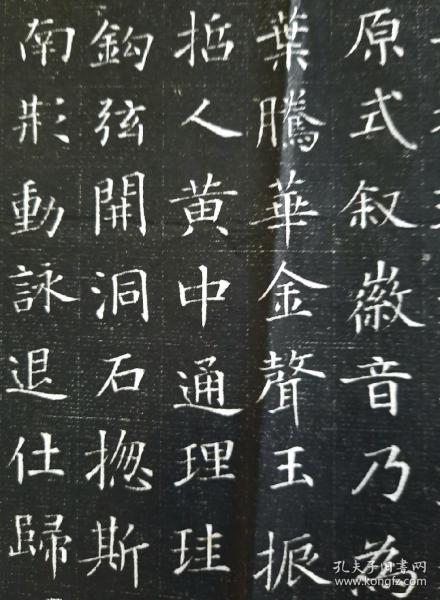 原式叙徽音乃為
葉騰華金聲玉振
哲人黄中通理珪
鈎弦開洞石揔斯
南荆動詠退仕歸
孔夫子旧书网